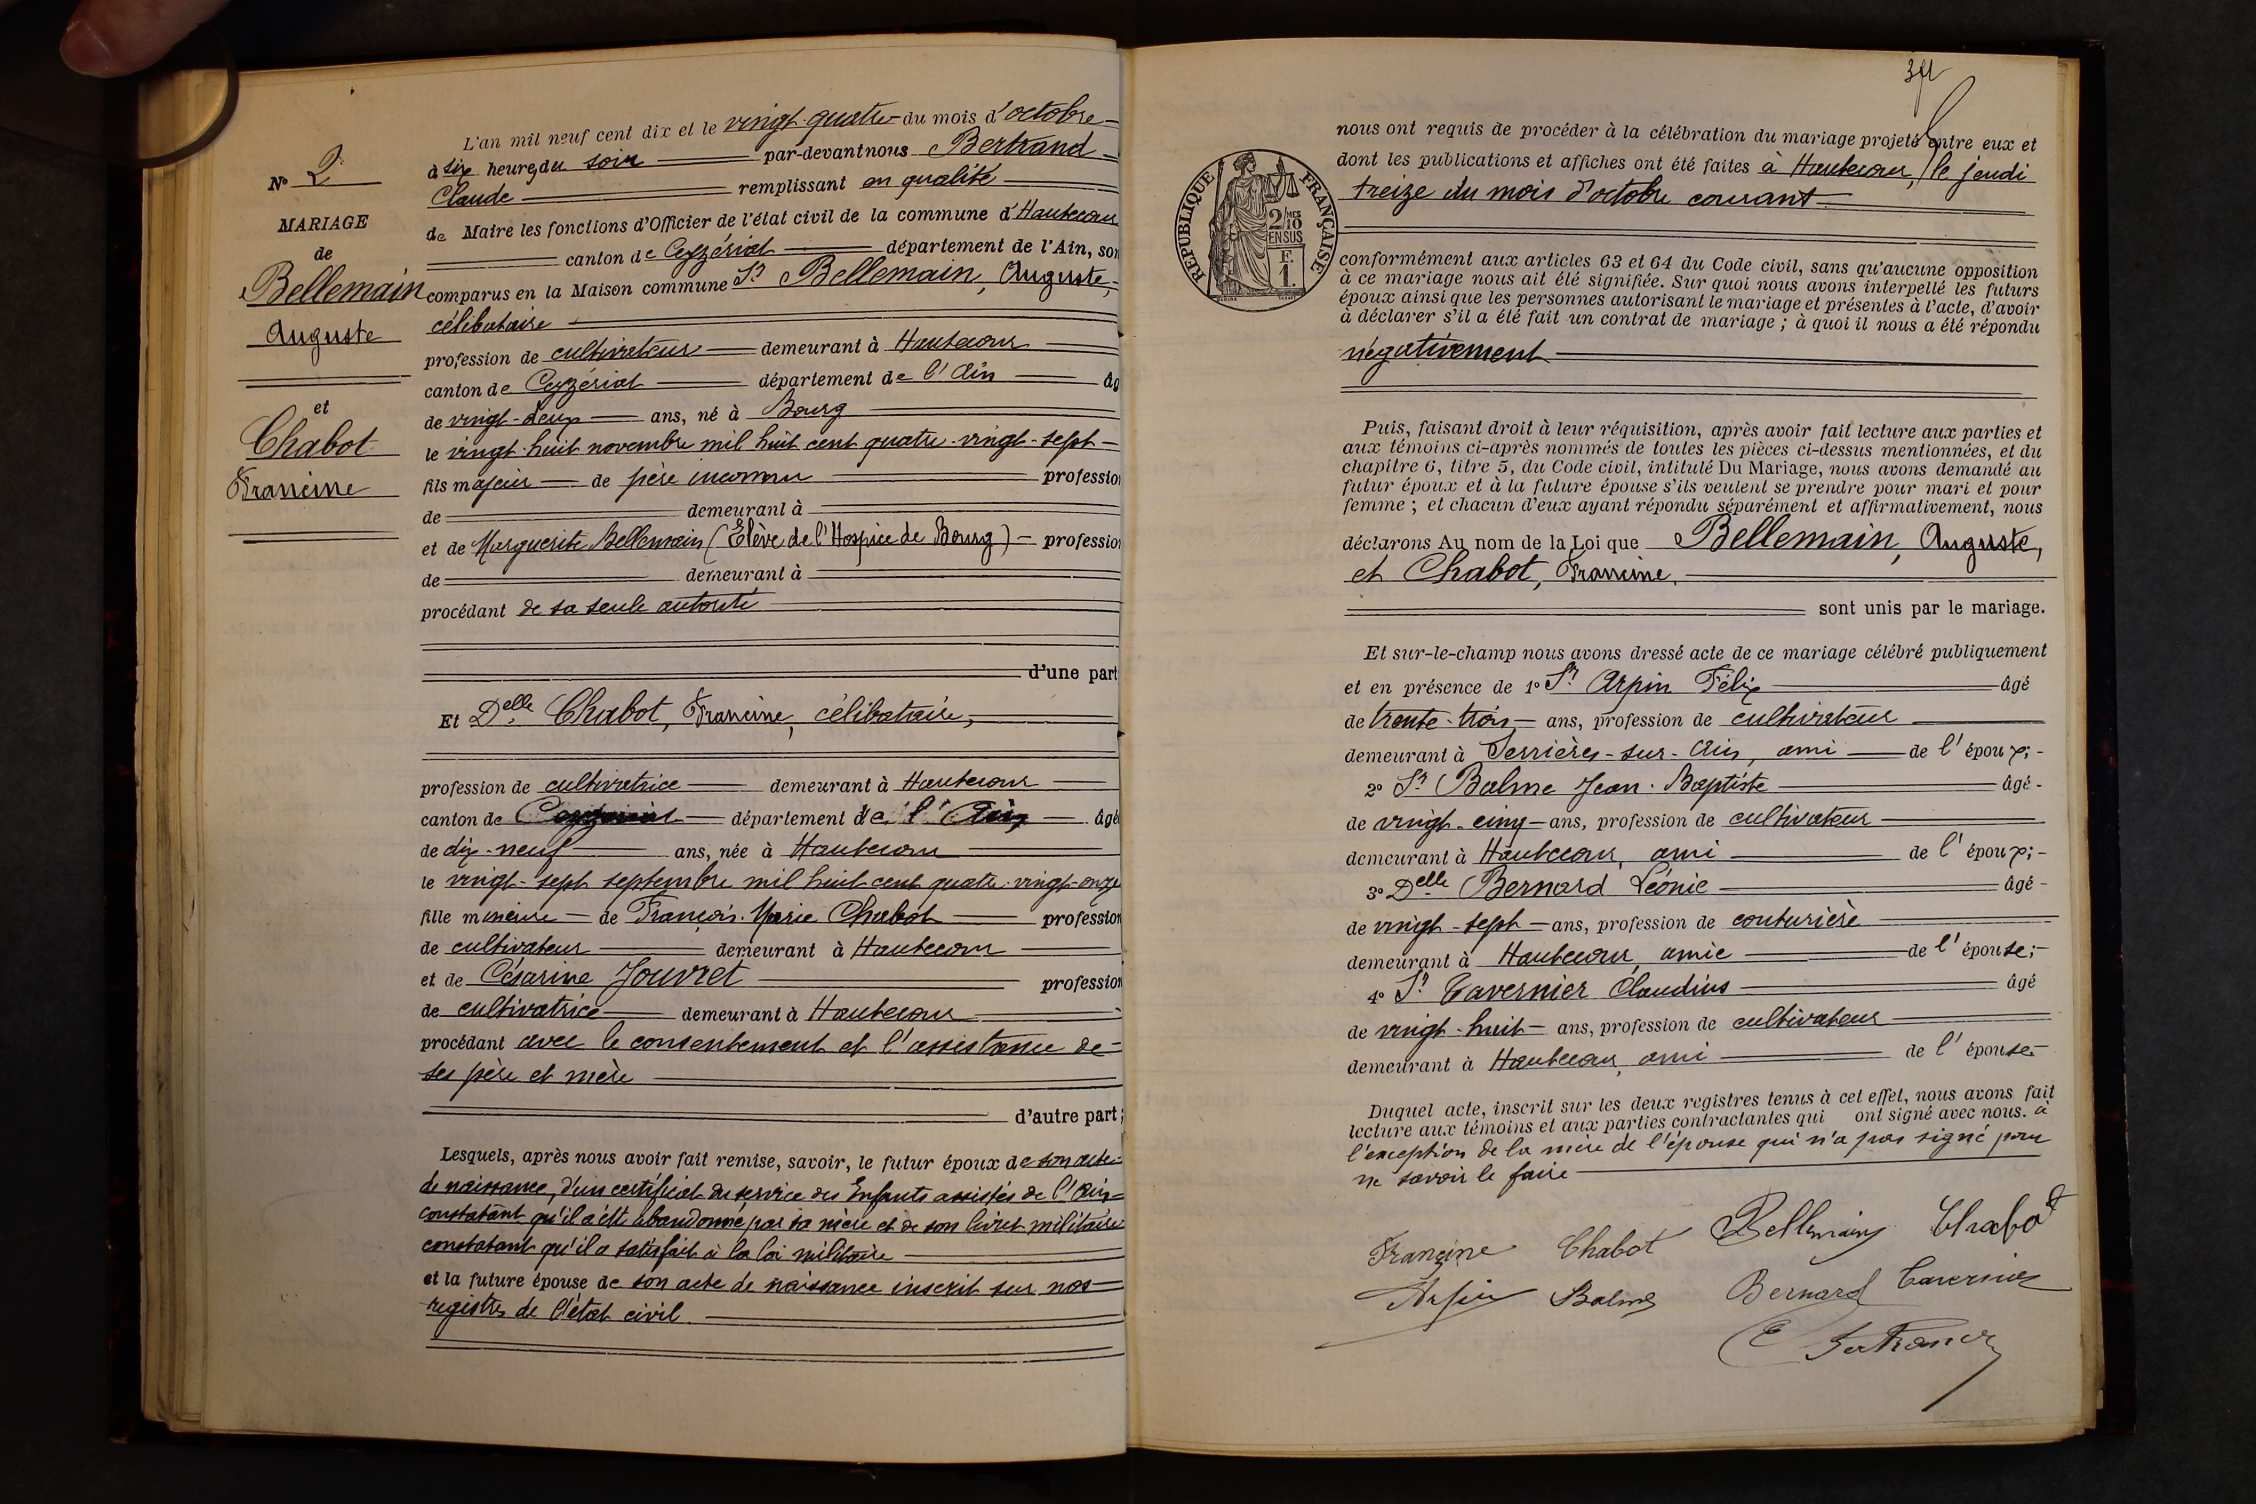 N° 2
MARIAGE
de
Bellemain
Auguste
et
Chabot
Francine
L'an mil neuf cent dix et le vingt-quatre du mois d'octobre
à six heures du soir par-devant nous Bertrand
Claude remplissant en qualité
de Maire les fonctions d'Officier de l'état civil de la commune d'Hautecour
canton de Ceyzériat département de l'Ain, son
comparus en la Maison commune Sr Bellemain, Auguste,
célibataire
profession de cultivateur demeurant à Hautecour
canton de Ceyzériat département de l'Ain âg
de vingt-deux ans, né à Bourg
le vingt-huit novembre mil huit cent quatre-vingt-sept
fils majeur de père inconnu profession
de demeurant à
et de Marguerite Bellemain (Elève de l'Hospice de Bourg) profession
de demeurant à
procédant de sa seule autorité
d'une part
Et Delle Chabot, Francine, célibataire,
profession de cultivatrice demeurant à Hautecour
canton de Ceyzériat département de l'Ain âgé
de dix-neuf ans, née à Hautecour
le vingt-sept septembre mil huit cent quatre-vingt-onze
fille mineure de François-Marie Chabot profession
de cultivateur demeurant à Hautecour
et de Césarine Jouvret profession
de cultivatrice demeurant à Hautecour
procédant avec le consentement et l'assistance de
ses père et mère
d'autre part ;
Lesquels, après nous avoir fait remise, savoir, le futur époux de son acte
de naissance, d'un certificat du service des Enfants assistés de l'Ain
constatant qu'il a été abandonné par sa mère et de son livret militaire
constatant qu'il a satisfait à la loi militaire
et la future épouse de son acte de naissance inscrit sur nos
registres de l'état civil.
RÉPUBLIQUE FRANÇAISE
2/10 MES
EN SUS
F.
1.
nous ont requis de procéder à la célébration du mariage projeté entre eux et
dont les publications et affiches ont été faites à Hautecour, le jeudi
treize du mois d'octobre courant
conformément aux articles 63 et 64 du Code civil, sans qu'aucune opposition
à ce mariage nous ait été signifiée. Sur quoi nous avons interpellé les futurs
époux ainsi que les personnes autorisant le mariage et présentes à l'acte, d'avoir
à déclarer s'il a été fait un contrat de mariage ; à quoi il nous a été répondu
négativement
Puis, faisant droit à leur réquisition, après avoir fait lecture aux parties et
aux témoins ci-après nommés de toutes les pièces ci-dessus mentionnées, et du
chapitre 6, titre 5, du Code civil, intitulé Du Mariage, nous avons demandé au
futur époux et à la future épouse s'ils veulent se prendre pour mari et pour
femme ; et chacun d'eux ayant répondu séparément et affirmativement, nous
déclarons Au nom de la Loi que Bellemain, Auguste,
et Chabot, Francine,
sont unis par le mariage.
Et sur-le-champ nous avons dressé acte de ce mariage célébré publiquement
et en présence de 1° Sr Arpin Félix âgé
de trente-trois ans, profession de cultivateur
demeurant à Serrières-sur-Ain, ami de l'époux ;
2° Sr Balme Jean-Baptiste âgé
de vingt-cinq ans, profession de cultivateur
demeurant à Hautecour, ami de l'époux ;
3° Delle Bernard Léonie âgé
de vingt-sept ans, profession de couturière
demeurant à Hautecour, amie de l'épouse ;
4° Sr Tavernier Claudius âgé
de vingt-huit ans, profession de cultivateur
demeurant à Hautecour, ami de l'épouse
Duquel acte, inscrit sur les deux registres tenus à cet effet, nous avons fait
lecture aux témoins et aux parties contractantes qui ont signé avec nous. à
l'exception de la mère de l'épouse qui n'a pas signé pour
ne savoir le faire
Francine Chabot Bellemain Chabot
Arpin Balme Bernard Tavernier
C Bertrand